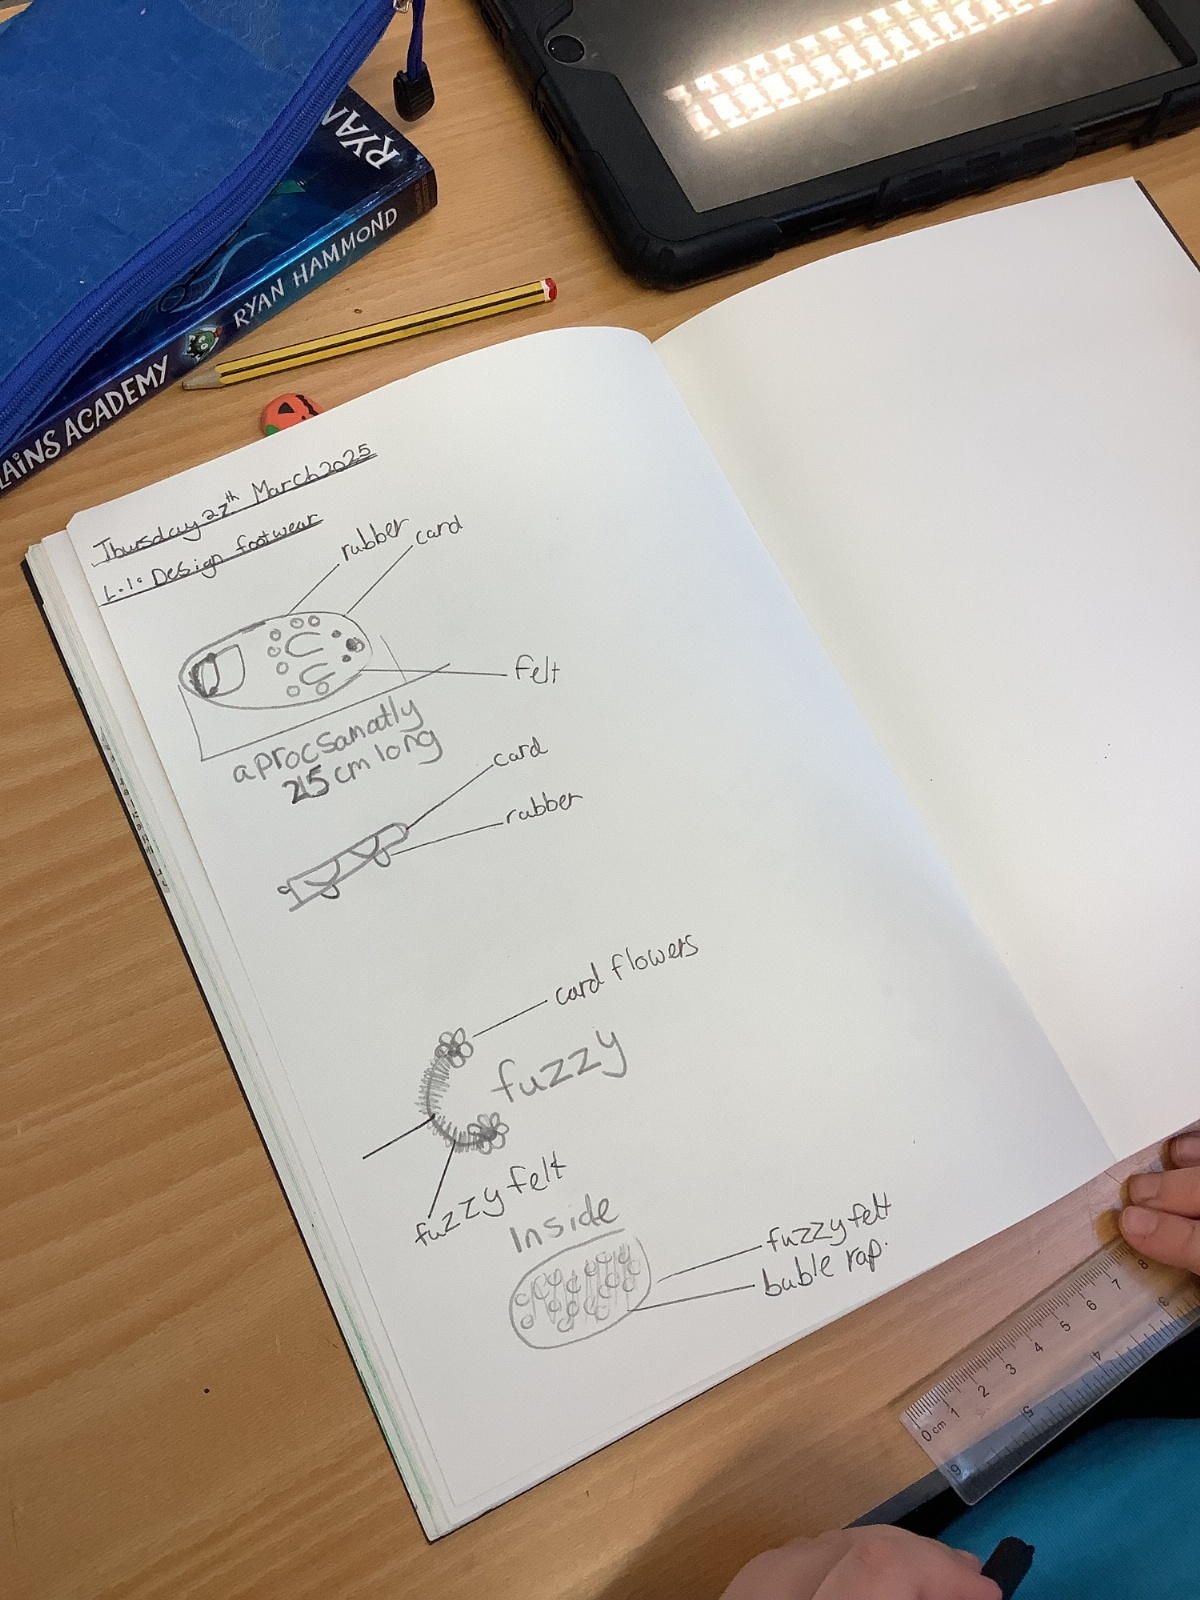 RYAN
LAINS ACADEMY RYAN HAMMOND
Thursday 27th March 2025
L.I: Design footwear
rubber
card
felt
aprocsamatly
215 cm long
card
rubber
card flowers
fuzzy
fuzzy felt
Inside
fuzzy felt
buble rap.
0 cm 1 2 3 4 5 6 7 8
6 5 4 3